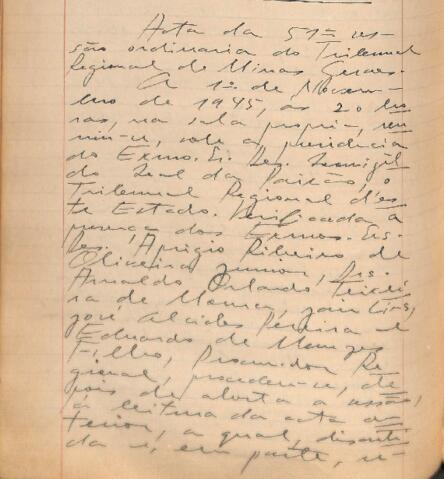 Acta da 51ª ses-
são ordinaria do Tribunal
Regional de Minas Geraes.
A 1º de Novem-
bro de 1945, ás 20 ho-
ras, na sala propria, reu
niu-se, sob a presidencia
do Exmo. Sr. Des.
do Leal da Paixão, o
Tribunal Regional d'es-
te Estado. Verificada a
presença dos Exmos. Srs.
Des. Aprigio Ribeiro de
Oliveira Junior, Drs.
Arnaldo Orlando Teixei
ra de Moura,
José Alcides Pereira e
Eduardo de Menezes
Filho, Procurador Re-
gional, procedeu-se, de
pois de aberta a sessão,
á leitura da acta an
terior, a qual, discuti
da e, em parte, re-